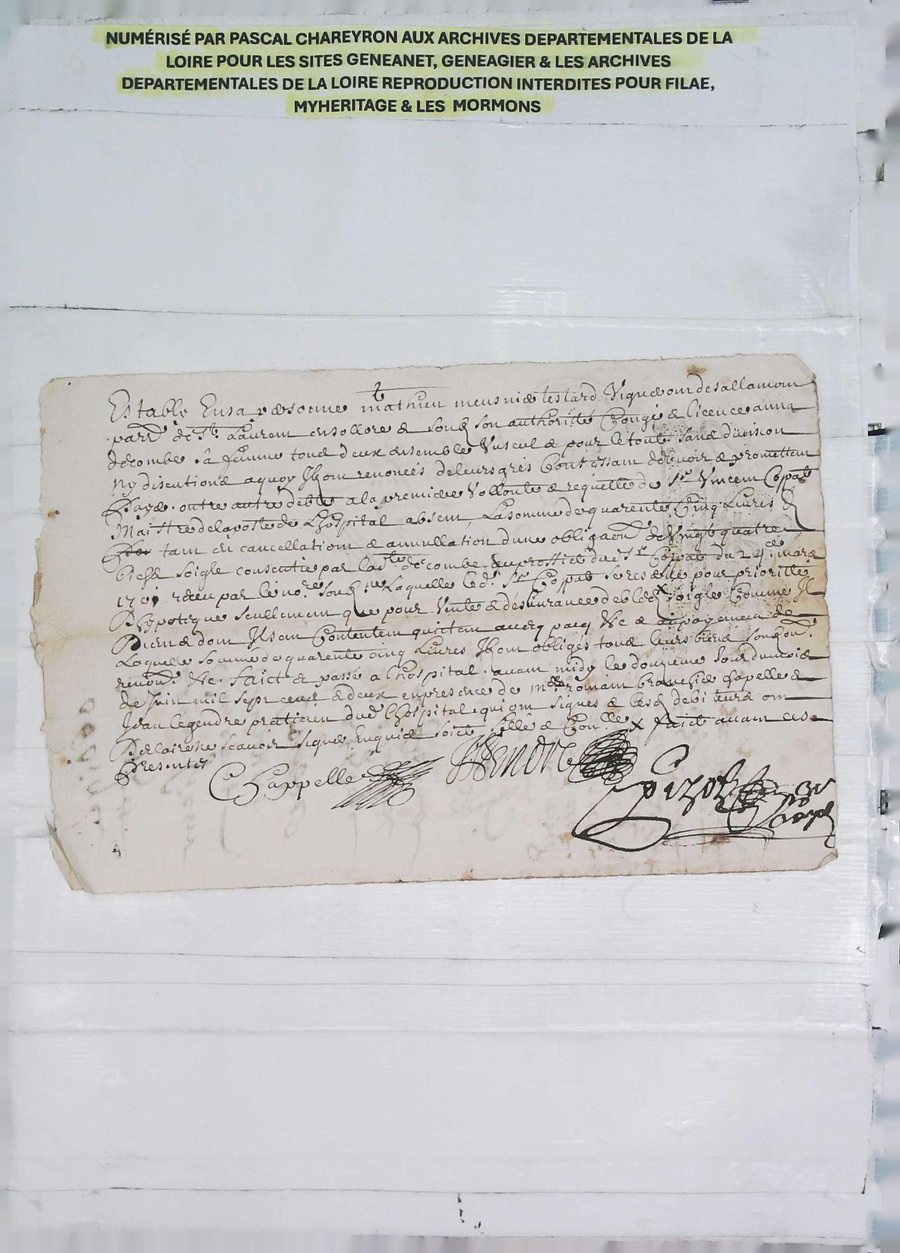 NUMÉRISÉ PAR PASCAL CHAREYRON AUX ARCHIVES DEPARTEMENTALES DE LA
LOIRE POUR LES SITES GENEANET, GENEAGIER & LES ARCHIVES
DEPARTEMENTALES DE LA LOIRE REPRODUCTION INTERDITES POUR FILAE,
MYHERITAGE & LES MORMONS
Estably En sa personne mathieu meusnier
parr. de St. Laurent en sollore & soubz son authorité Congé & licence anna
decombe sa femme tous deux ensemble & pour le tout sans division
ny discution a quoy Ilz ont renoncés de leurs grés Confessent debvoir & promettent
payer a la premiere Vollonté & requette de Sr. Vincent
Maistre de la poste de Lhospital absent, La somme de quarente Cinq Livres
tant en cancellation & annullation dune obligaon. de Vingt quatre
bichz soigle par decombe au proffict du Sr. du mars
1701 receu par le nore. soubz. Laquelle led. Sr. pour priorité
& hypoteque seullement que pour Vente & deslivrance de bled soigle Comme Il
dont Ilz sont Contentz quicttent avecq pacq &c & au payement de
Laquelle somme de quarente cinq Livres Ilz ont obligés tous leurs biens
renon. &c. faict & passé a Lhospital avant midy le douzieme Jour du mois
de Juin mil sept cent & deux en presence de romain Chapelle &
Jean Legendre praticien dud. Lhospital qui ont signés & lesd. debiteurs ont
declaré ne scavoir signer Enquis soict faict avant ces
presentes
Chappelle